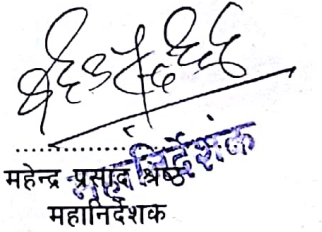 ....................
महेन्द्र प्रसाद श्रेष्ठ
महानिर्देशक
महानिर्देशक